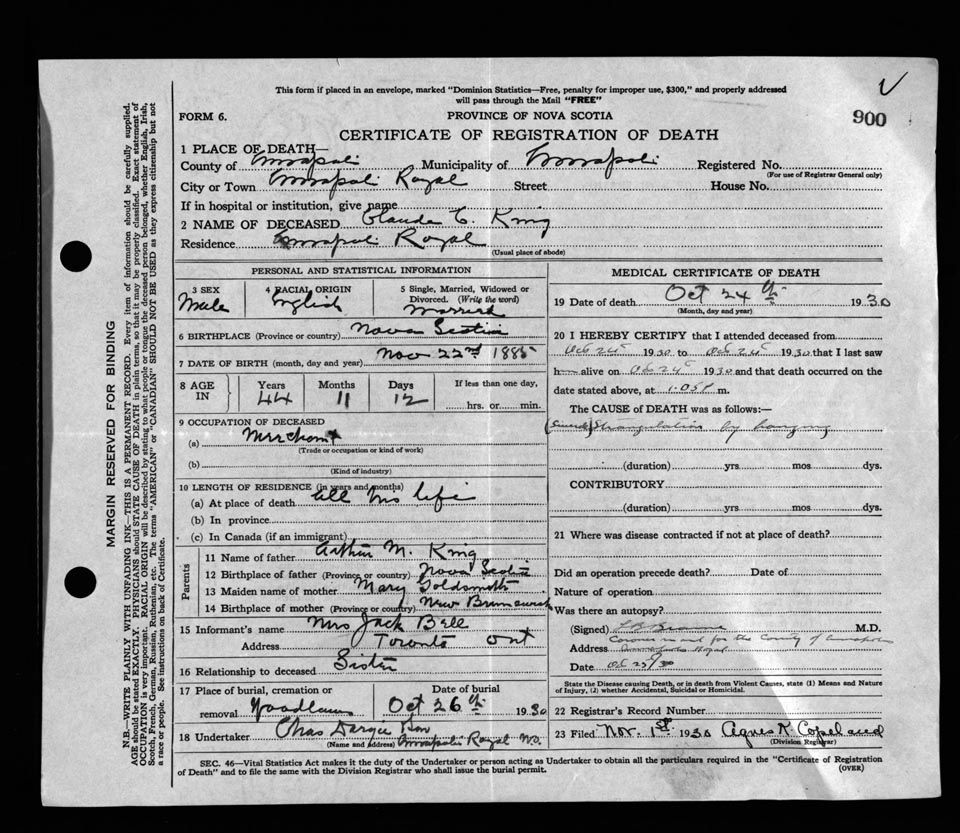 This form if placed in an envelope, marked "Dominion Statistics—Free, penalty for improper use, $300," and properly addressed
will pass through the Mail "FREE"
FORM 6.
PROVINCE OF NOVA SCOTIA
900
CERTIFICATE OF REGISTRATION OF DEATH
1 PLACE OF DEATH—
County of Annapolis Municipality of Annapolis Registered No.
(For use of Registrar General only)
City or Town Annapolis Royal Street House No.
If in hospital or institution, give name
2 NAME OF DECEASED Claude C. King
Residence Annapolis Royal
(Usual place of abode)
PERSONAL AND STATISTICAL INFORMATION
3 SEX
Male
4 RACIAL ORIGIN
English
5 Single, Married, Widowed or
Divorced. (Write the word)
Married
6 BIRTHPLACE (Province or country) Nova Scotia
7 DATE OF BIRTH (month, day and year) Nov 22nd 1885
8 AGE
IN
Years
44
Months
11
Days
12
If less than one day,
hrs. or min.
9 OCCUPATION OF DECEASED
(a) Merchant
(Trade or occupation or kind of work)
(b)
(Kind of industry)
10 LENGTH OF RESIDENCE (in years and months)
(a) At place of death all his life
(b) In province
(c) In Canada (if an immigrant)
Parents
11 Name of father Arthur M. King
12 Birthplace of father (Province or country) Nova Scotia
13 Maiden name of mother Mary Goldsmith
14 Birthplace of mother (Province or country) New Brunswick
15 Informant's name Mrs Jack Bell
Address Toronto Ont
16 Relationship to deceased Sister
17 Place of burial, cremation or
removal Woodlawn
Date of burial
Oct 26th 1930
18 Undertaker Chas Dargie & Son
(Name and address) Annapolis Royal N.S.
MEDICAL CERTIFICATE OF DEATH
19 Date of death Oct 24th 1930
(Month, day and year)
20 I HEREBY CERTIFY that I attended deceased from
Oct 24 1930 to Oct 24 1930 that I last saw
h alive on Oct 24 1930 and that death occurred on the
date stated above, at 1.05 P m.
The CAUSE of DEATH was as follows:—
(Suicide) Strangulation by hanging
(duration) yrs mos dys.
CONTRIBUTORY
(duration) yrs mos dys.
21 Where was disease contracted if not at place of death?
Did an operation precede death? Date of
Nature of operation
Was there an autopsy?
(Signed) M.D.
Coroner in and for the County of Annapolis
Address Annapolis Royal
Date Oct 25/30
State the Disease causing Death, or in death from Violent Causes, state (1) Means and Nature
of Injury, (2) whether Accidental, Suicidal or Homicidal.
22 Registrar's Record Number
23 Filed Nov. 1st 1930 Agnes K. Copeland
(Division Registrar)
SEC. 46—Vital Statistics Act makes it the duty of the Undertaker or person acting as Undertaker to obtain all the particulars required in the "Certificate of Registration
of Death" and to file the same with the Division Registrar who shall issue the burial permit.
(OVER)
MARGIN RESERVED FOR BINDING
N.B.—WRITE PLAINLY WITH UNFADING INK—THIS IS A PERMANENT RECORD. Every item of information should be carefully supplied.
AGE should be stated EXACTLY. PHYSICIANS should STATE CAUSE OF DEATH in plain terms, so that it may be properly classified. Exact statement of
OCCUPATION is very important. RACIAL ORIGIN will be described by stating to what people or tongue the deceased person belonged, whether English, Irish,
Scotch, French, German, Russian, Ruthenian, etc. The terms "AMERICAN" or "CANADIAN" SHOULD NOT BE USED as they express citizenship but not
a race or people. See instructions on back of Certificate.